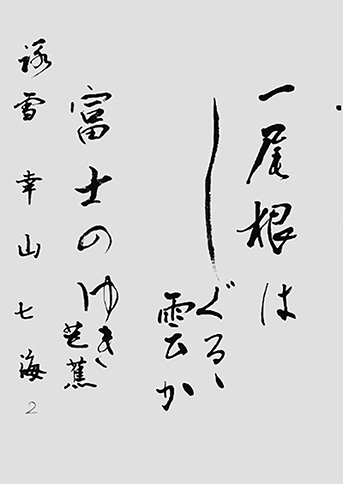 一尾根は
しぐるゝ
雲か
富士のゆき
芭蕉
詠雪 幸山七海
2